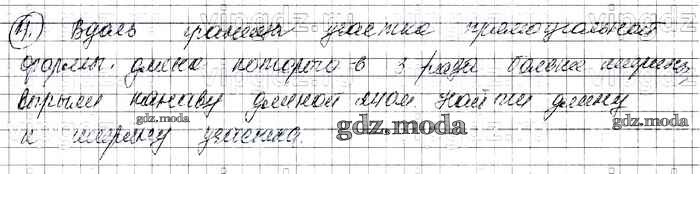 11. Вдоль границы участка прямоугольной
формы, длина которого в 3 раза больше ширины,
вырыли канаву длиной 240м Найти длину
gdz.moda
и ширину участка.
gdz.moda
gdz.moda